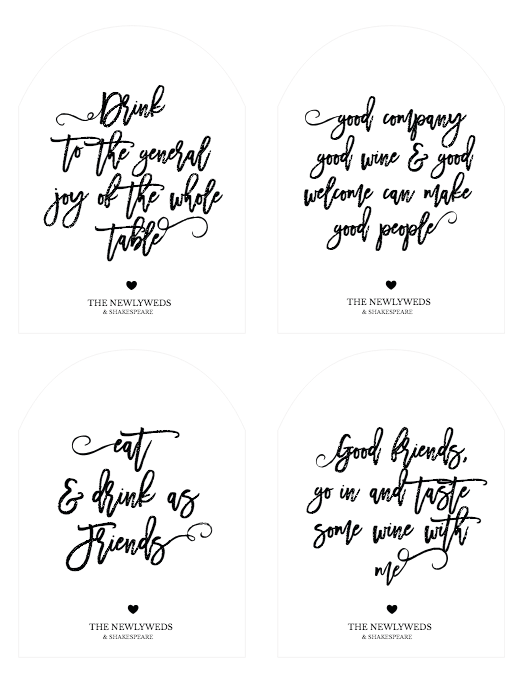 Drink
to the general
joy of the whole
table
THE NEWLYWEDS
& SHAKESPEARE
good company
good wine & good
welcome can make
good people
THE NEWLYWEDS
& SHAKESPEARE
eat
& drink as
Friends
THE NEWLYWEDS
& SHAKESPEARE
Good friends,
go in and taste
some wine with
me
THE NEWLYWEDS
& SHAKESPEARE